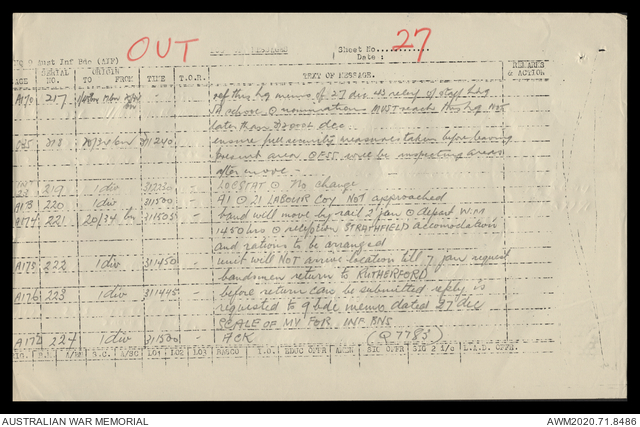 OUT
27
HQ 9 Aust Inf Bde (AIF) Sheet No.
Date
SERIAL ORIGIN
NO. TO FROM TIME T.O.R. TEXT OF MESSAGE. REMARKS & ACTION
A170 217 - - ref this hq memo of 27 dec 43 relief of staff hq
A above ⊙ nomination MUST reach this hq NOT
later than dec
218 20/34 bn 311240 ensure full security measures taken before leaving
present area ⊙ will be inspecting areas
after move -
219 1 div 312230 - LOCSTAT ⊙ No change
A173 220 1 div 311500 - A1 ⊙ 21 LABOUR COY NOT approached
A174 221 20/34 bn 311505 - band will move by rail 2 jan ⊙ depart
1450 hrs ⊙ reception STRATHFIELD accomodation
and rations to be arranged
A175 222 1 div 311450 - unit will NOT arrive location till 7 jan request
bandsmen return to RUTHERFORD
A176 223 1 div 311445 - before return can be submitted reply is
requested to 9 bde memo dated 27 dec
SCALE OF MV FOR INF BNS
A172 224 1 div 311500 - ACK (Q7783)
B.C. LO1 LO2 LO3 BARCO I.O. SIG 2 I/C L.A.D. OFFR.
AUSTRALIAN WAR MEMORIAL AWM2020.71.8486